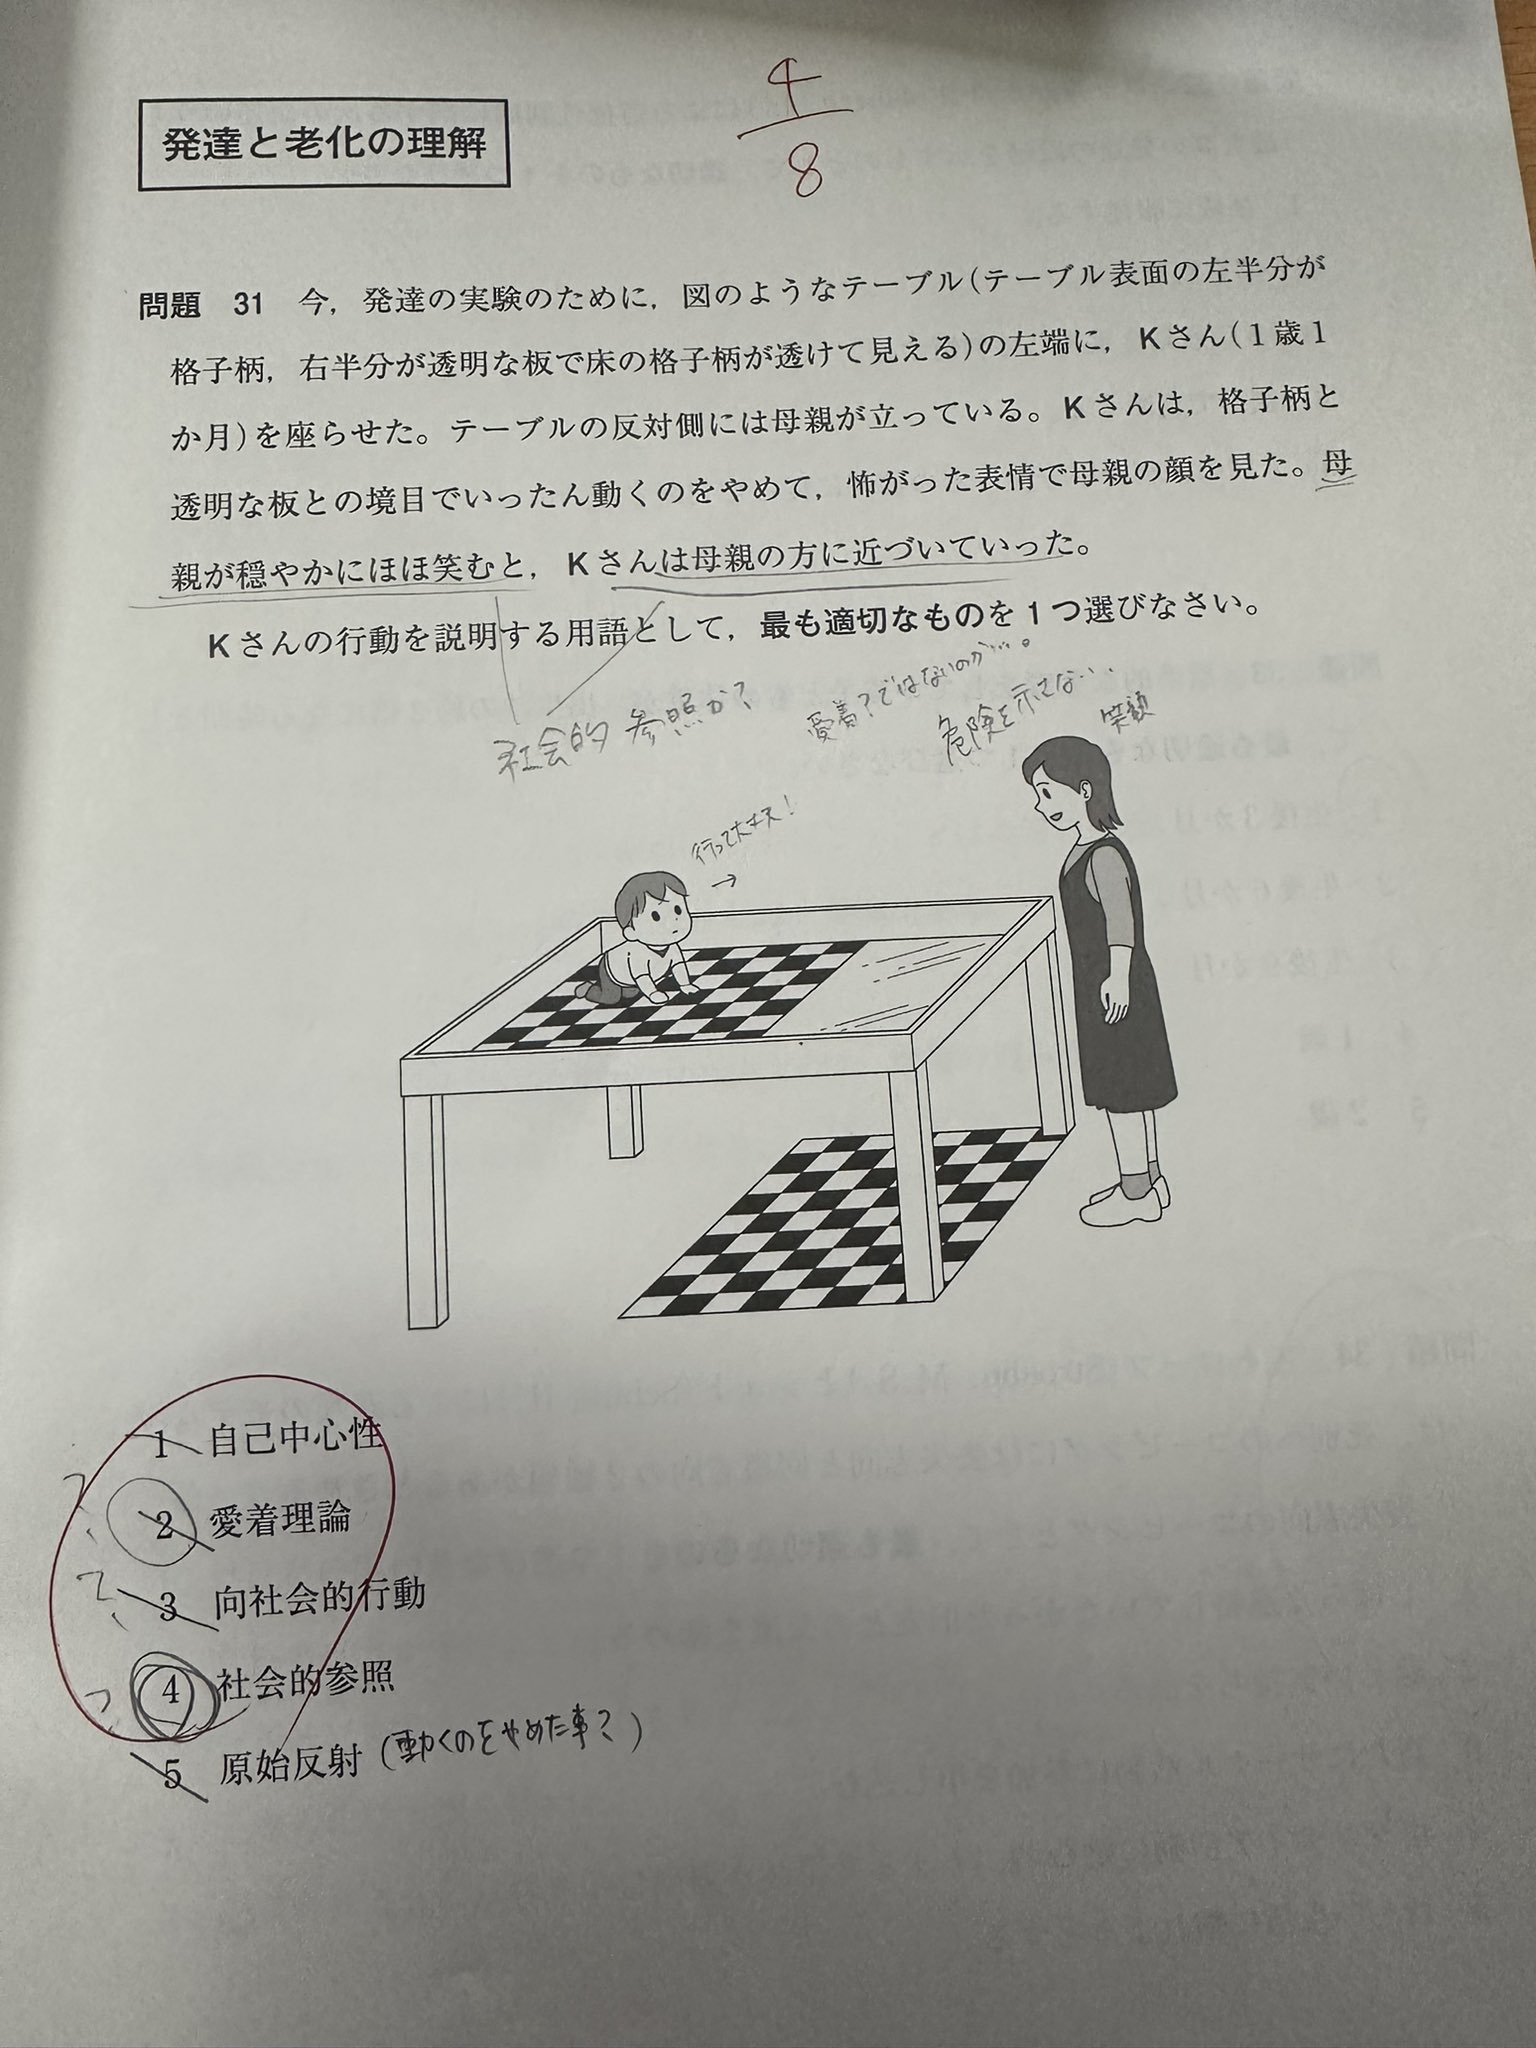 発達と老化の理解
4
8
問題 31 今，発達の実験のために，図のようなテーブル(テーブル表面の左半分が
格子柄，右半分が透明な板で床の格子柄が透けて見える)の左端に，Kさん(1歳1
か月)を座らせた。テーブルの反対側には母親が立っている。Kさんは，格子柄と
透明な板との境目でいったん動くのをやめて，怖がった表情で母親の顔を見た。母
親が穏やかにほほ笑むと，Kさんは母親の方に近づいていった。
Kさんの行動を説明する用語として，最も適切なものを1つ選びなさい。
社会的参照か？
愛着？ではないのか…。
危険を示さない、、
笑顔
行って大丈夫！
→
1 自己中心性
2 愛着理論
3 向社会的行動
4 社会的参照
5 原始反射 (動くのをやめた事？)